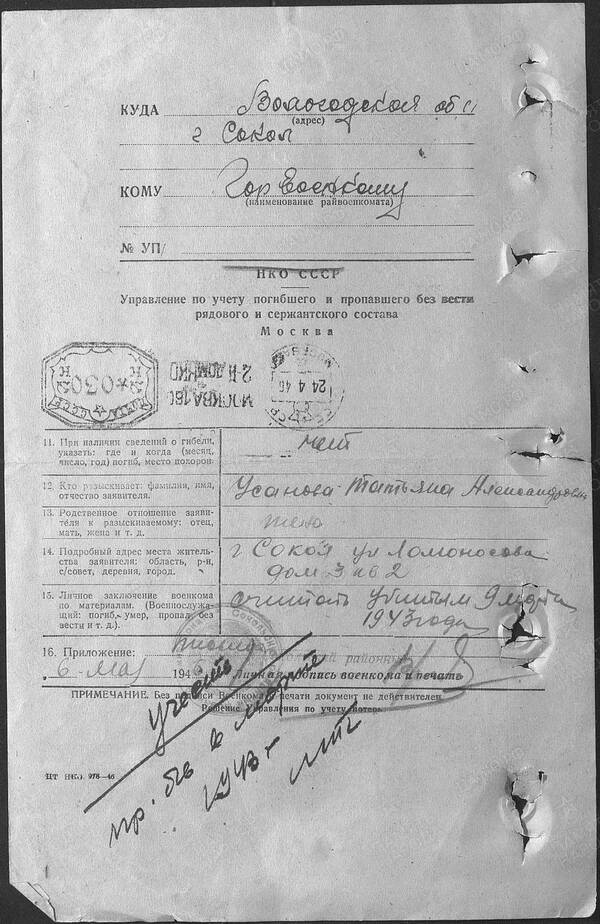 КУДА Вологодская обл
(адрес)
г Сокол
КОМУ Гор Военкому
(наименование райвоенкомата)
№ УП/
НКО СССР
Управление по учету погибшего и пропавшего без вести
рядового и сержантского состава
Москва
ПОЧТА СССР
030
К К
МОСКВА
24 4 46
11. При наличии сведений о гибели, указать: где и когда (месяц, число, год) погиб, место похорон.
нет
12. Кто разыскивает: фамилия, имя, отчество заявителя.
Усанова Татьяна Александровна
13. Родственное отношение заявителя к разыскиваемому: отец, мать, жена и т. д.
жена
14. Подробный адрес места жительства заявителя: область, р-н, с/совет, деревня, город.
г Сокол ул Ломоносова
дом 3 кв 2
15. Личное заключение военкома по материалам. (Военнослужащий: погиб, умер, пропал без вести и т. д.).
считать убитым 9 марта
1943 года
16. Приложение: письмо
районный
6 мая 194 Личная подпись военкома и печать
ПРИМЕЧАНИЕ. Без подписи Военкома и печати документ не действителен.
Решение Управления по учету потерь.
учесть
пр. б/в в марте
43 г
ЦТ НКО 978—46